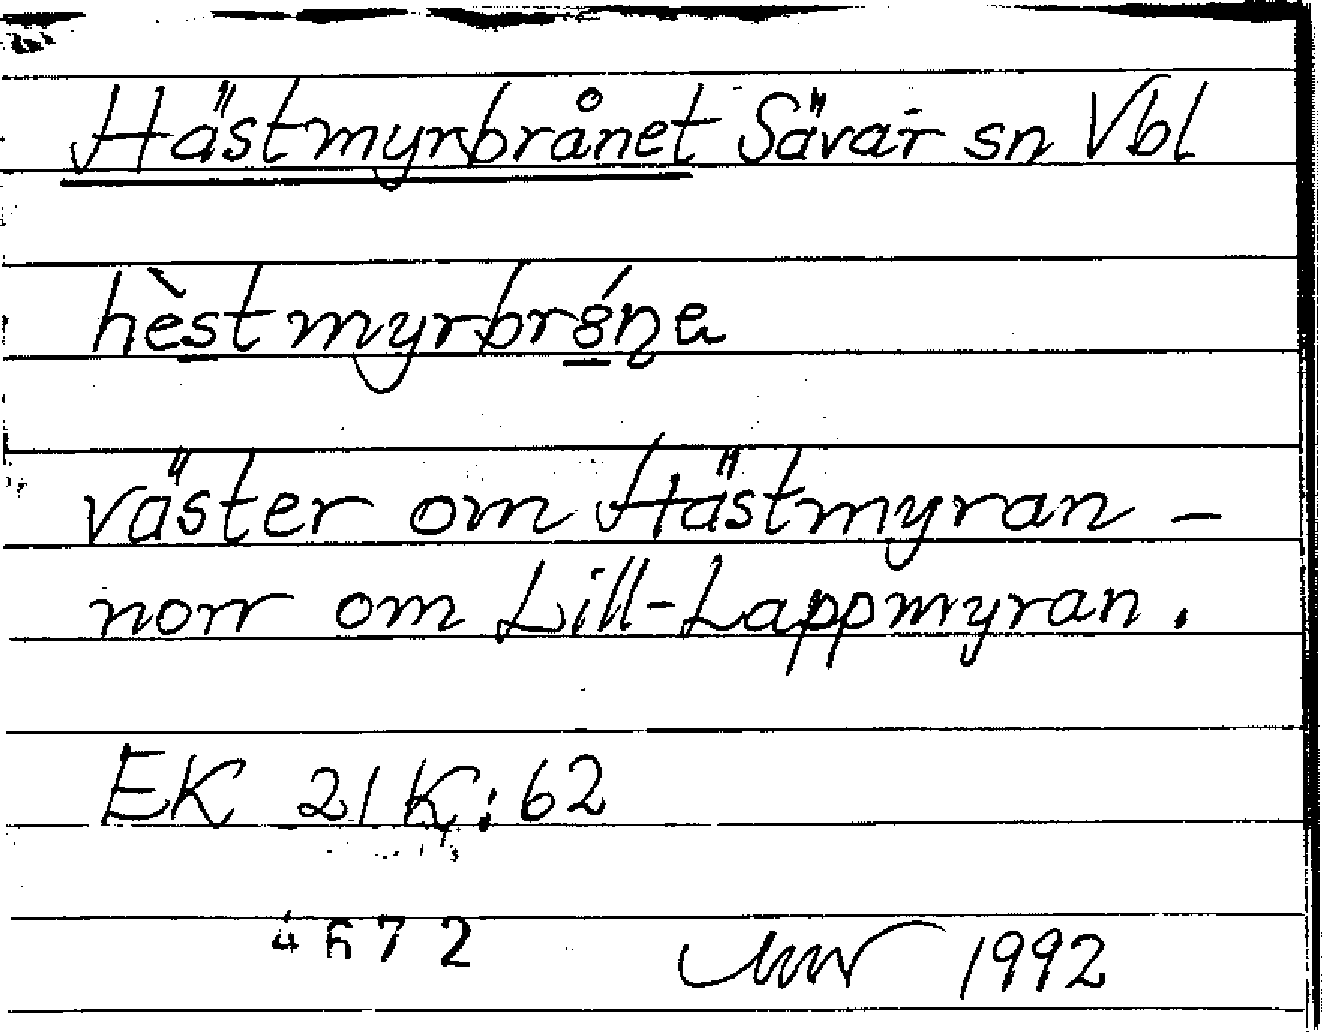 Hästmyrbrånet Sävar sn Vbl
hèstmyrbrǿn̥e
väster om Hästmyran –
norr om Lill-Lappmyran.
EK 21K:62
4672
1992